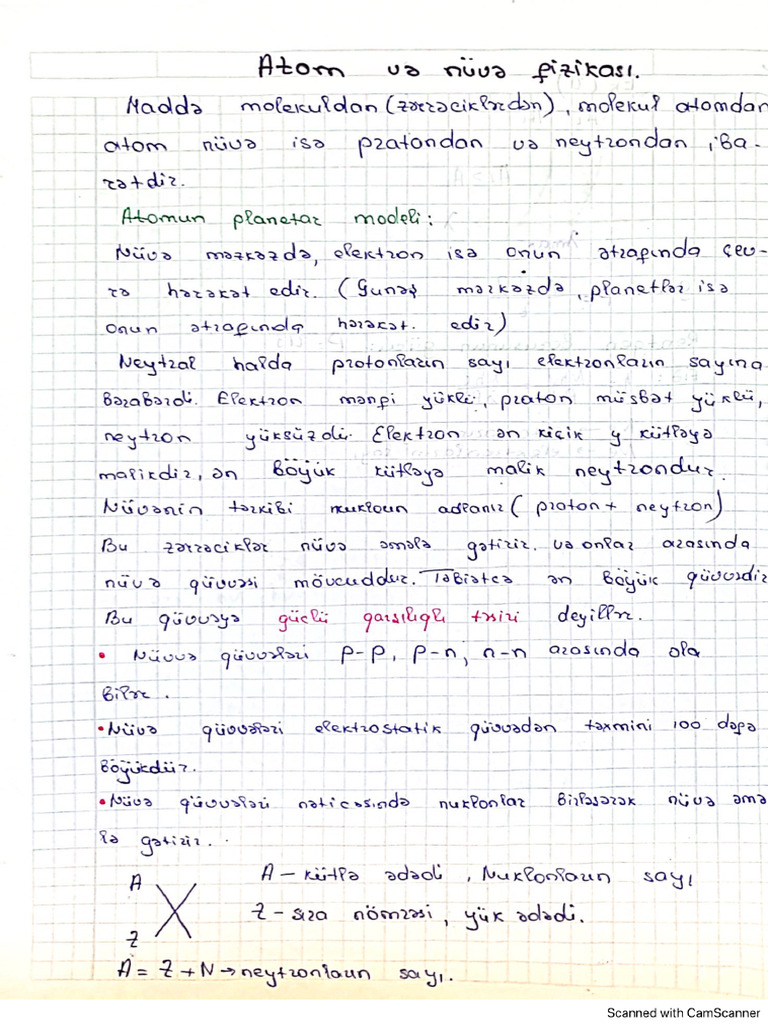 Atom və nüvə fizikası.
Maddə molekuldan (zərrəciklərdən), molekul atomdan
atom nüvə isə pratondan və neytrondan iba-
rətdir.
Atomun planetar modeli:
Nüvə mərkəzdə, elektron isə onun ətrafında çev-
rə hərəkət edir. (Gunəş mərkəzdə, planetlər isə
onun ətrafında hərəkət. edir)
Neytral halda protonların sayı elektronların sayına
bərabərdi. Elektron mənfi yükli, praton müsbət yüklü,
neytron yüksüzdü. Elektron ən kiçik y kütləyə
malikdir, ən böyük kütləyə malik neytrondur.
Nüvənin tərkibi nukloun adlanır (proton + neytron)
Bu zərrəciklər nüvə əmələ gətirir. və onlar arasında
nüvə qüvvəsi mövcuddur. Təbiətcə ən böyük qüvvədir
Bu qüvvəyə güclü qarşılıqlı təsiri deyillər.
• Nüvvə qüvvələri p-p, p-n, n-n arasında ola
bilər.
• Nüvə qüvvələri elektrostatik qüvvədən təxmini 100 dəfə
böyükdür.
• Nüvə qüvvələri nəticəsində nuklonlar birləşərək nüvə əmə
lə gətirir.
A
X
Z
A - kütlə ədədi, Nuklonlaın sayı
Z - sıra nömrəsi, yük ədədi.
A = Z + N → neytronlaın sayı.
Scanned with CamScanner